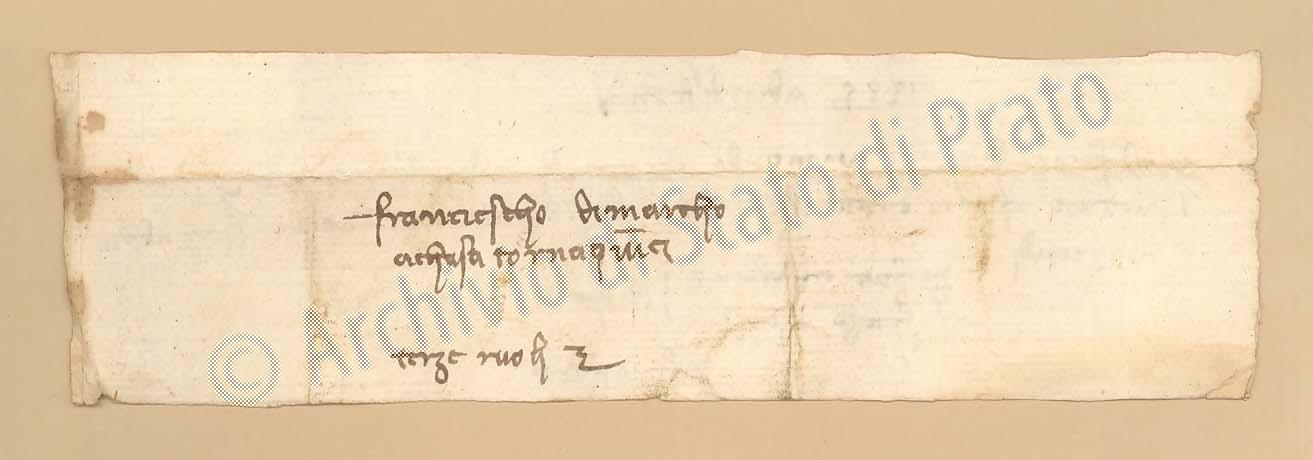 franciescho dimarcho
achasa tornaq
terze
© Archivio di Stato di Prato